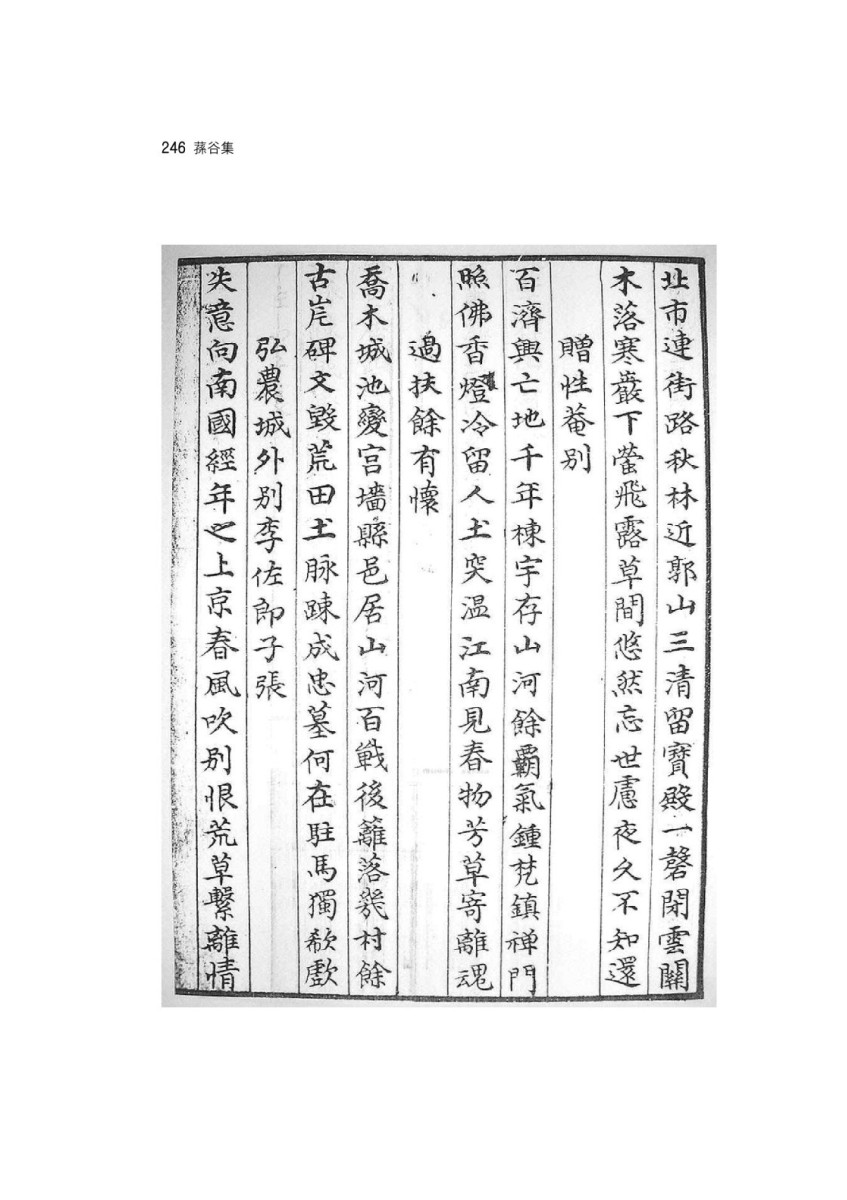 246 蓀谷集
北市連街路秋林近郭山三清留寶殿一磬閉雲關
木落寒巖下螢飛露草間悠然忘世慮夜久不知還
贈性菴別
百濟興亡地千年棟宇存山河餘霸氣鍾梵鎮禅門
照佛香燈冷留人土突温江南見春物芳草寄離魂
過扶餘有懷
喬木城池變宮墻縣邑居山河百戰後籬落幾村餘
古岸碑文毀荒田土脉踈成忠墓何在駐馬獨欷歔
弘農城外別李佐郎子張
失意向南國經年又上京春風吹別恨荒草繫離情